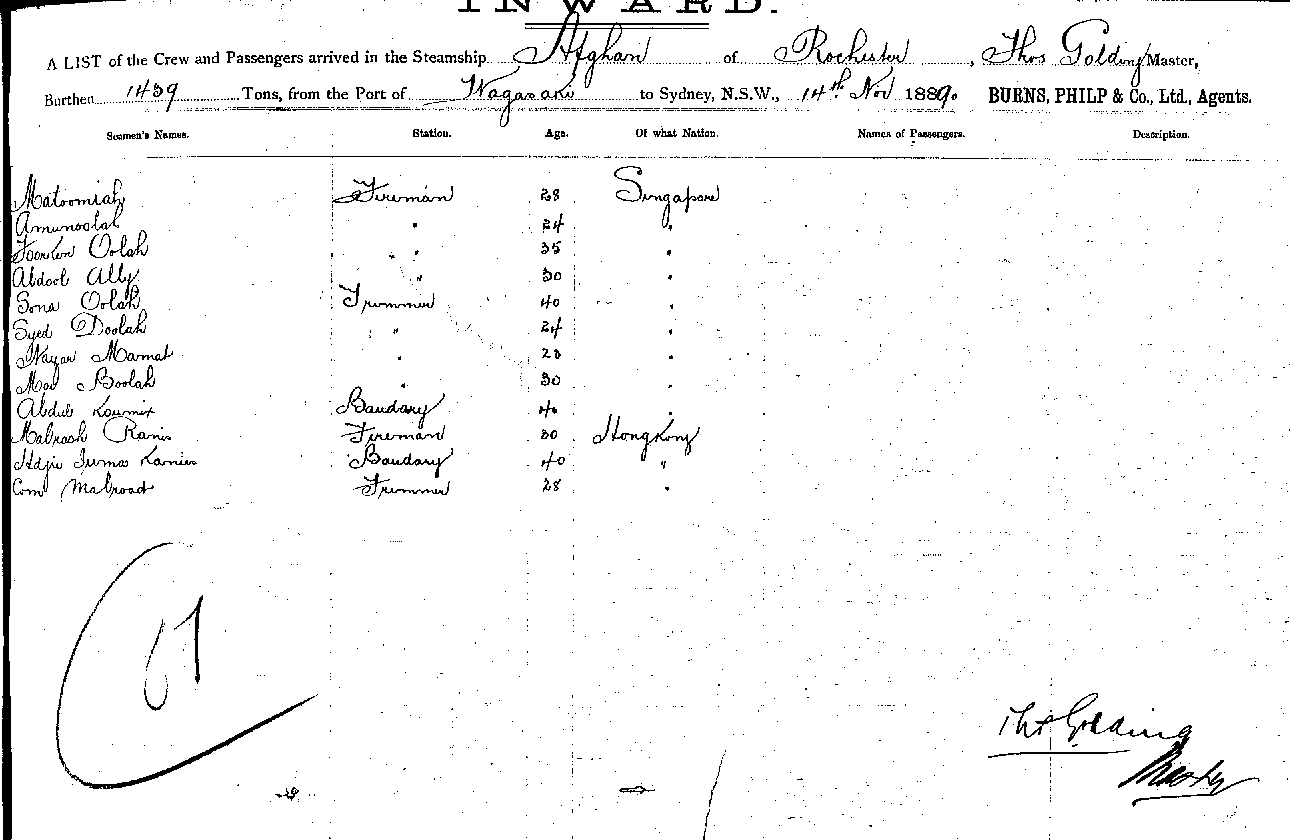 INWARD.
A LIST of the Crew and Passengers arrived in the Steamship Afghan of Rochester, Thos Golding Master,
Burthen 1439 Tons, from the Port of Nagasaki to Sydney, N.S.W., 14th Nov 1889. BURNS, PHILP & Co., Ltd., Agents.
Seamen's Names. Station. Age. Of what Nation. Names of Passengers. Description.
Matoomiah Fireman 28 Singapore
Amunoolah " 24 "
Oolah " 35 "
Abdool Ally " 30 "
Sona Oolah Trimmer 40 "
Syed Doolah " 24 "
Mamat " 28 "
Boolah " 30 "
Abdul Baudary 40 "
Fireman 30 HongKong
Baudary 40 "
Trimmer 28 "
Thos Golding
Master